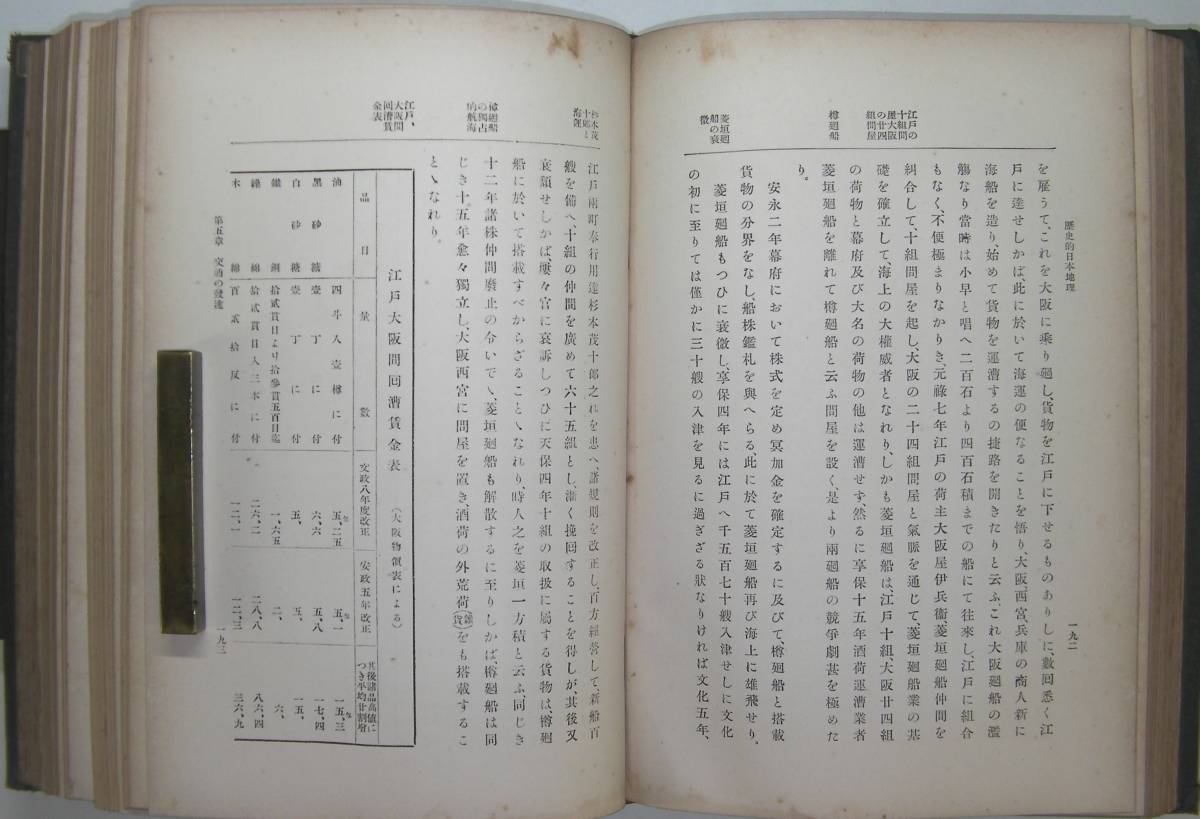 歷史的日本地理
一九二
江戶の
十組問
屋大阪
の廿四
組問屋
樽廻船
菱垣廻
船の衰
微
を雇うて、これを大阪に乘り廻し、貨物を江戶に下せるものありしに、數回悉く江
戶に達せしかば此に於いて海運の便なることを悟り、大阪、西宮、兵庫の商人新に
海船を造り、始めて貨物を運漕するの捷路を開きたりと云ふ、これ大阪廻船の濫
觴なり當時は小早と唱へ二百石より四百石積までの船にて往來し、江戶に組合
もなく、不便極まりなかりき、元祿七年江戶の荷主大阪屋伊兵衞菱垣廻船仲間を
糾合して、十組問屋を起し、大阪の二十四組問屋と氣脈を通じて、菱垣廻船業の基
礎を確立して、海上の大權威者となれり、しかも菱垣廻船は、江戶十組、大阪廿四組
の荷物と幕府及び大名の荷物の他は運漕せず、然るに享保十五年酒荷運漕業者
菱垣廻船を離れて樽廻船と云ふ問屋を設く、是より兩廻船の競爭劇甚を極めた
り。
安永二年幕府において株式を定め冥加金を確定するに及びて、樽廻船と搭載
貨物の分界をなし、船株鑑札を與へらる、此に於て菱垣廻船再び海上に雄飛せり。
菱垣廻船もつひに衰微し、享保四年には江戶へ千五百七十艘入津せしに文化
の初に至りては僅かに三十艘の入津を見るに過ぎざる狀なりければ文化五年、
杉本茂
十郞と
海運
樽廻船
の獨占
的航海
江戶、
大阪間
回漕賃
金表
江戶兩町奉行用達杉本茂十郞之れを患へ、諸規則を改正し、百方經營して新船百
艘を備へ、十組の仲間を廣めて六十五組とし、漸く挽回することを得しが、其後又
衰頽せしかば、屢々官に哀訴しつひに天保四年十組の取扱に屬する貨物は、樽廻
船に於いて搭載すべからざることゝなれり、時人之を菱垣一方積と云ふ、同じき
十二年諸株仲間廢止の令いでゝ、菱垣廻船も解散するに至りしかば、樽廻船は同
じき十五年愈々獨立し、大阪西宮に問屋を置き、酒荷の外荒荷(雜貨)をも搭載するこ
とゝなれり。
江戶大阪間回漕賃金表 (大阪物價表による)
品目 量數 文政八年度改正 安政五年改正 其後諸品高値につき平均廿割增
油 四斗入壹樽に付 五、二五 五、一 一五、三
黑砂糖 壹丁に付 六、六 五、八 一七、四
白砂糖 壹丁に付 五、 五、 一五、
鐵銅 拾貳貫目より拾參貫五百目迄 一、六五 二、 六、
繰綿 拾貳貫目入三本に付 二六、二 二八、八 八六、四
木綿 百貳拾反に付 一二、一 一二、三 三六、九
第五章 交通の發達
一九三